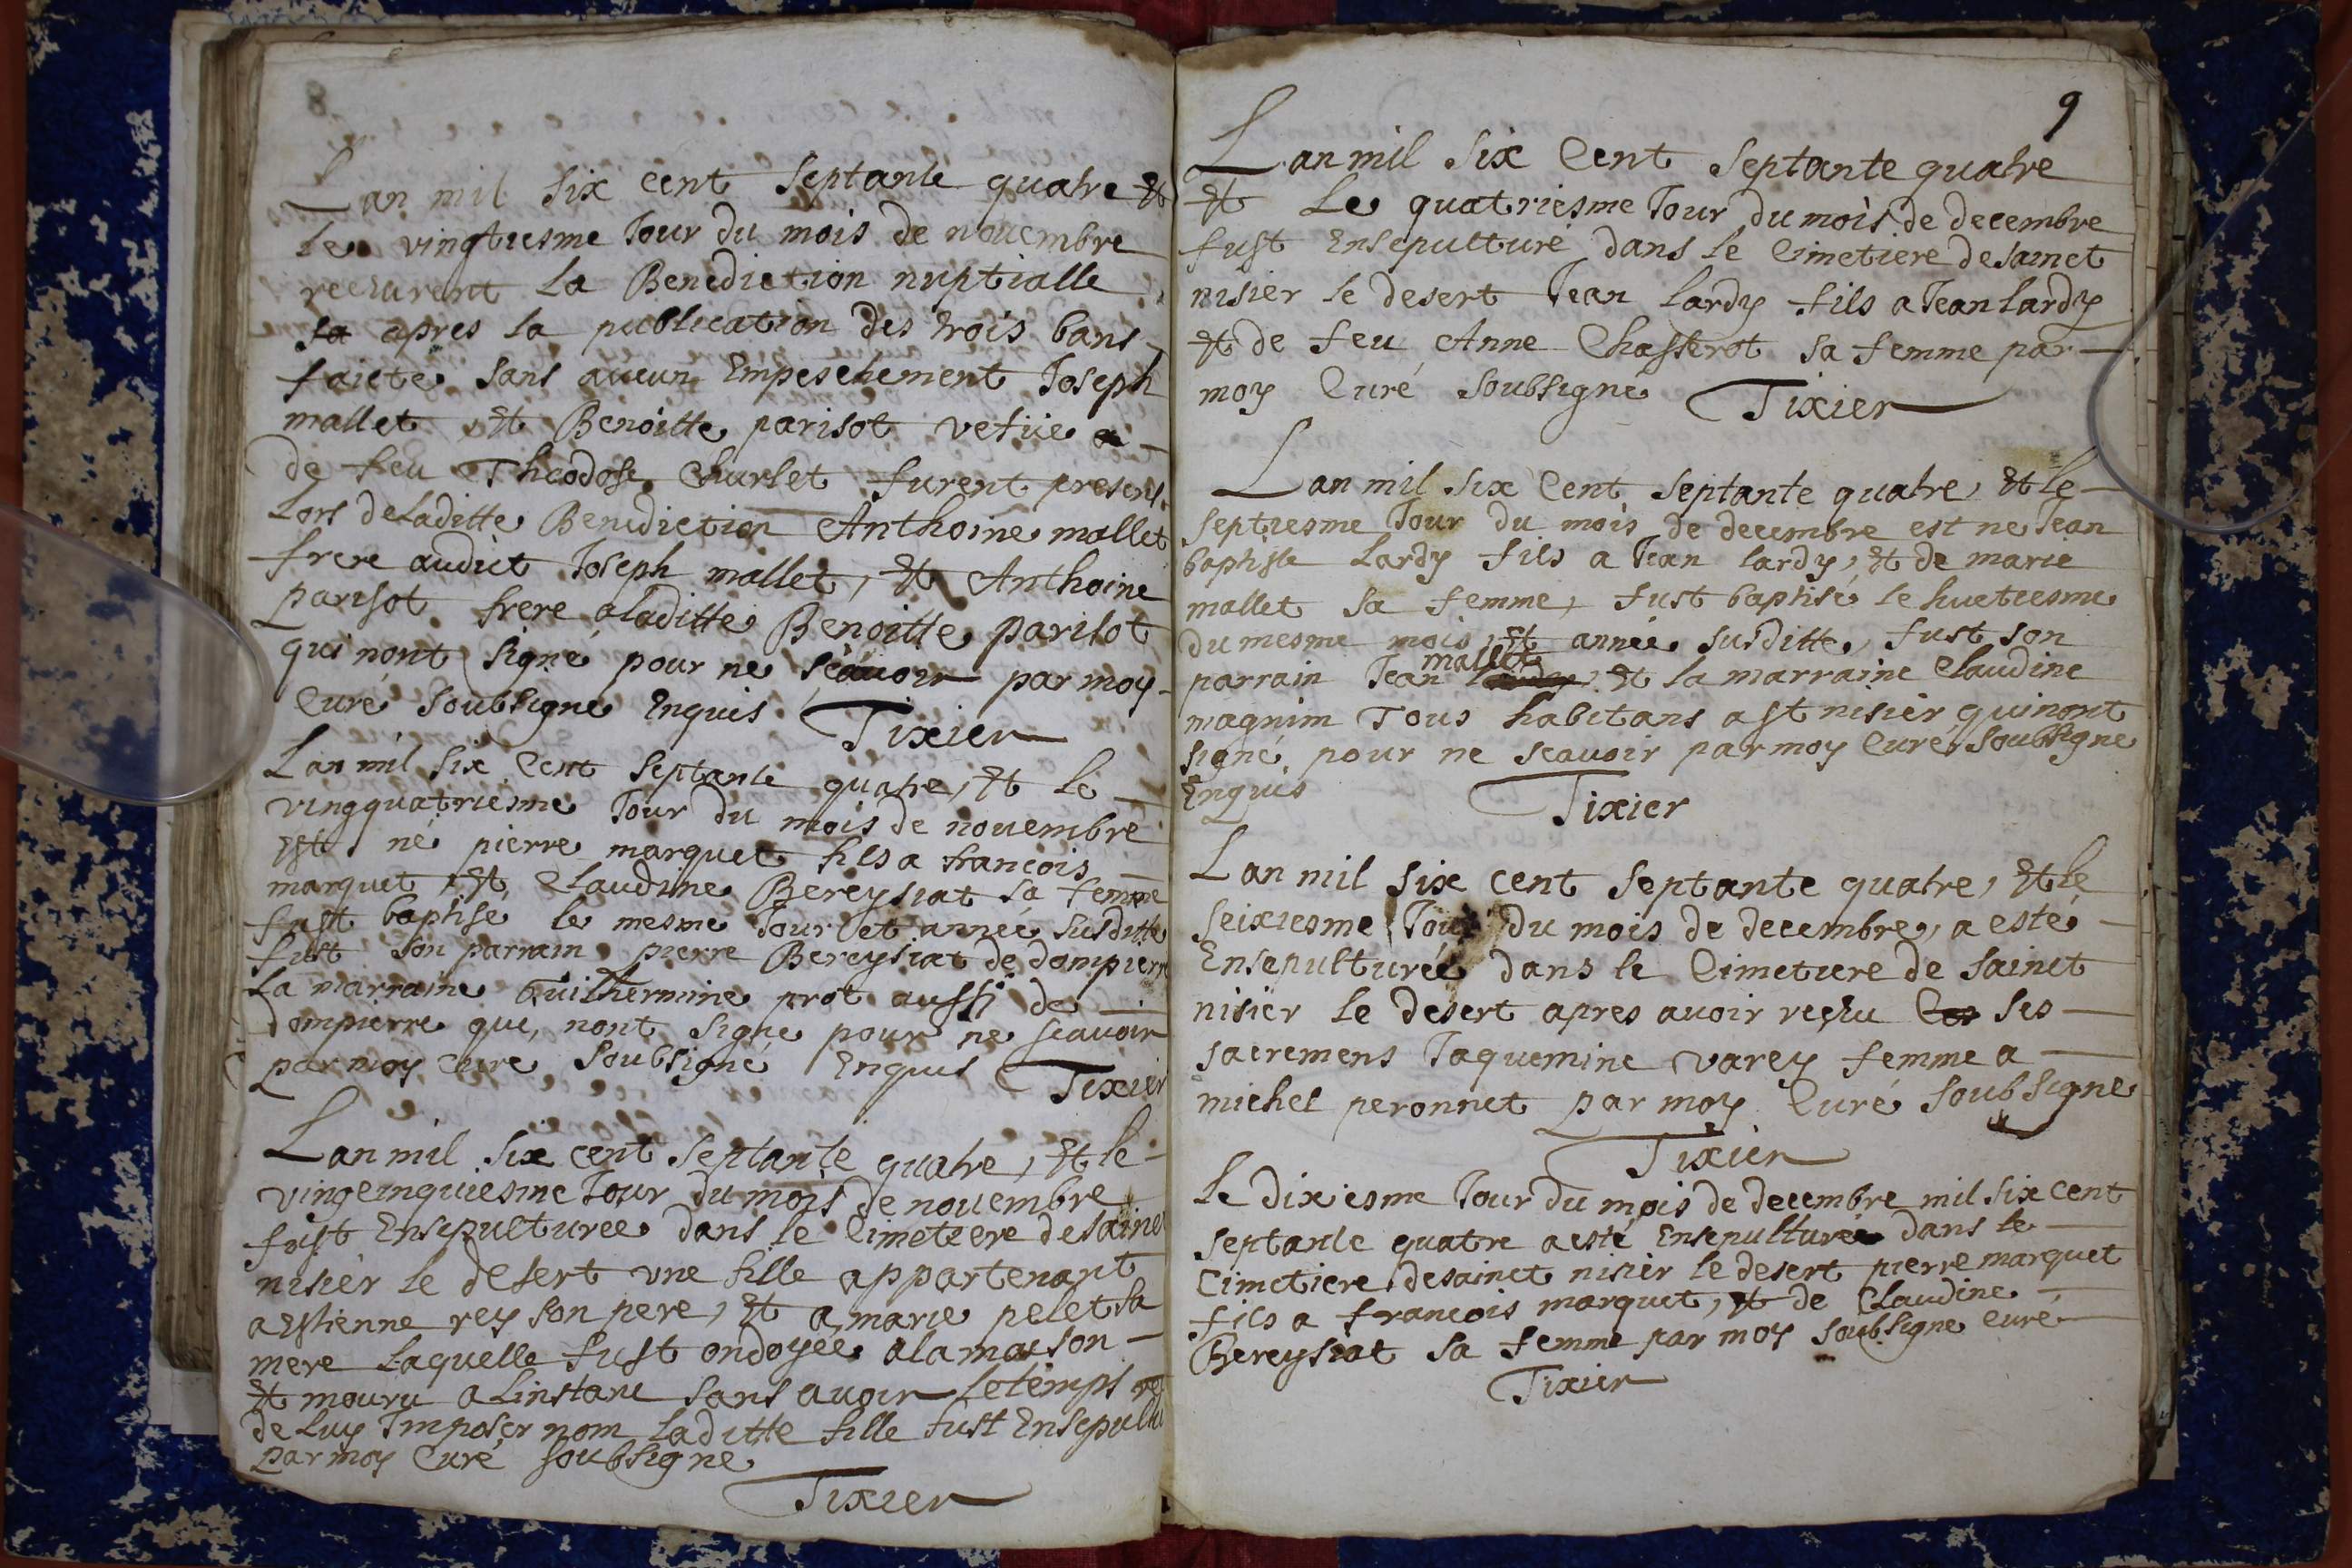 8
Lan mil six cent septante quatre et
le vingtiesme Jour du mois de nouembre
receurent la Benediction nuptialle
sa apres la publication des trois bans
faicte sans aucun Empeschement Joseph
mallet et Benoitte parisot vefue a
de feu Theodose Churlet furent presens
Lors deladitte Benediction Anthoine mallet
frere audict Joseph mallet, et Anthoine
parisot frere aladitte Benoitte parisot
qui nont signé pour ne scauoir par moy
Curé soubsigne Enquis Tixier
Lan mil six Cent septante quatre, et le
vingquatriesme Jour du mois de nouembre
Est né pierre marquet fils a francois
marquet et Claudine Bereysiat sa femme
fust baptisé le mesme Jour et année susditte
fust son parrain pierre Bereysiat de dompierre
La marraine Guilhermine prot aussi de
dompierre qui, nont signe pour ne scauoir
par moy Cure soubsigné Enquis Tixier
Lan mil six cent septante quatre, et le
vingcinquiesme Jour du mois de nouembre
fust Ensepulturee dans le Cimetiere de sainct
nisier le desert vne fille appartenant
a Estienne rey son pere, et a marie pelet sa
mere Laquelle fust ondoyée alamaison
et mouru alinstant sans auoir letemps
de luy Imposer nom laditte fille fust Ensepultu
par moy Curé soubsigne
Tixier
9
Lan mil six Cent septante quatre
et Le quatriesme Jour du mois de decembre
fust Ensepulturé dans le Cimetiere desainct
nisier le desert Jean Lardy fils a Jean Lardy
et de feu Anne Chasserot sa femme par
moy Curé soubsigne Tixier
Lan mil six Cent septante quatre, et le
septiesme Jour du mois de decembre est ne Jean
baptiste Lardy fils a Jean lardy, et de marie
mallet sa femme, fust baptisé le huictiesme
du mesme mois et année susditte, fust son
parrain Jean mallet et la marraine Claudine
magnim Tous habitans a st nisier qui nont
signé pour ne scauoir par moy Curé soubsigne
Enquis Tixier
Lan mil six cent septante quatre, et le
seixiesme Jour du mois de decembre, a esté
Ensepulturée dans le Cimetiere de sainct
nisier le desert apres auoir reçeu ses
sacremens Jaquemine varey femme a
michel peronnet par moy Curé soubsigne
Tixier
Le dixiesme Jour du mois de decembre mil six cent
septante quatre a esté Ensepulturée dans le
Cimetiere desainct nisier le desert pierre marquet
fils a francois marquet, et de Claudine
Bereysiat sa femme par moy soubsigne curé
Tixier